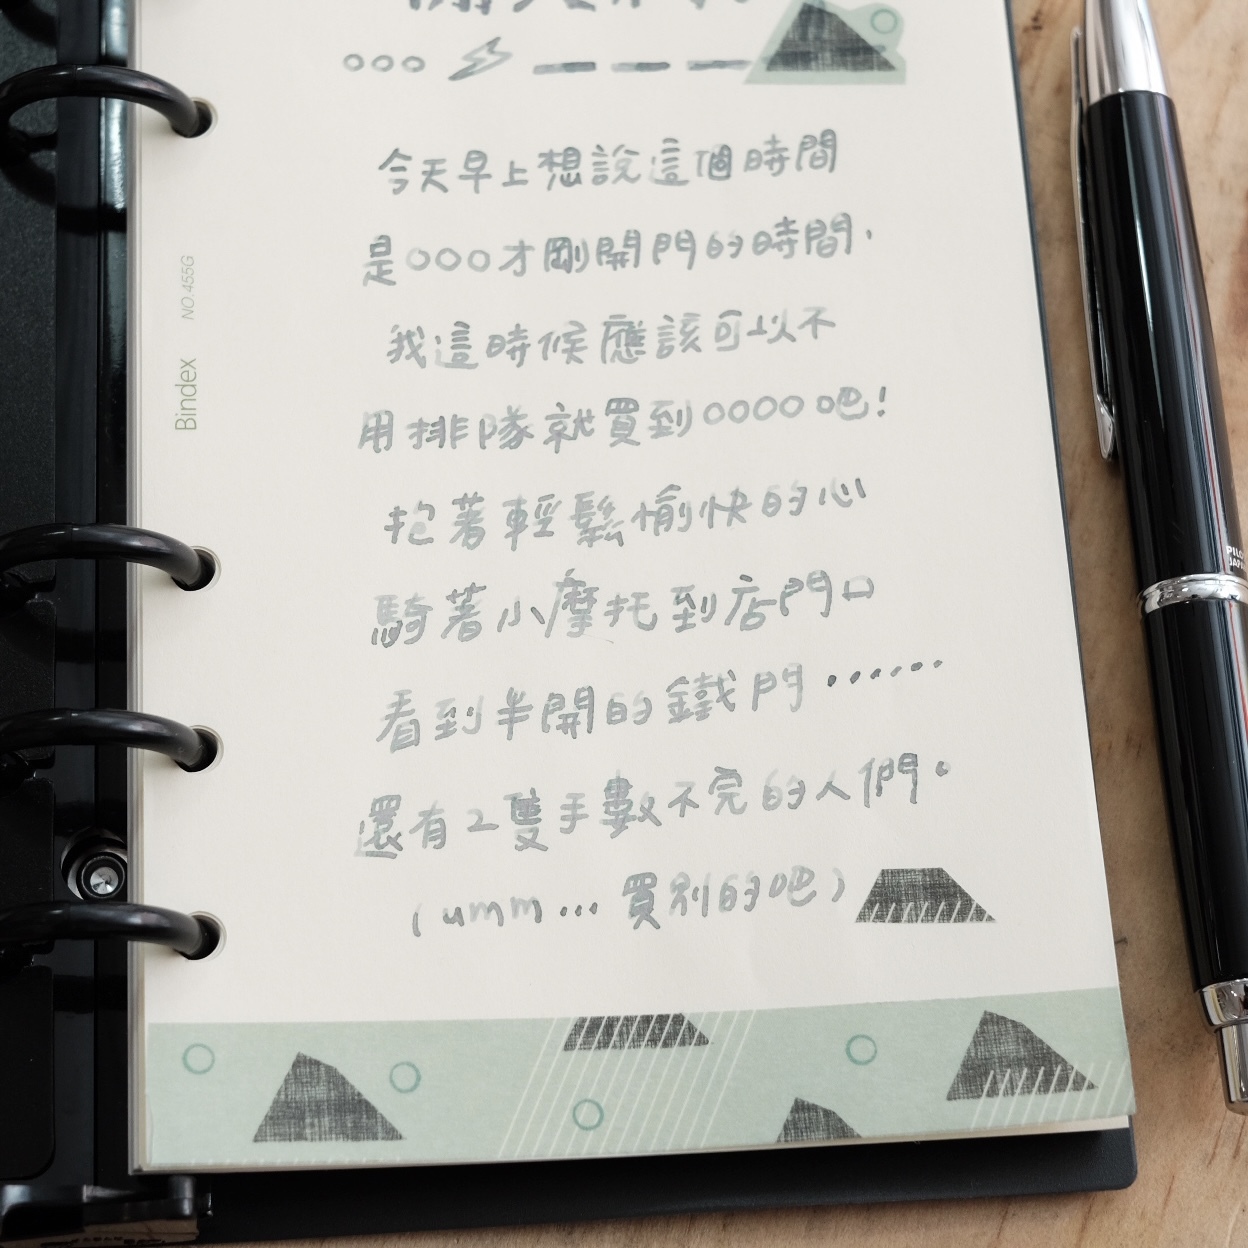 今天早上想說這個時間
是○○○才剛開門的時間,
我這時候應該可以不
用排隊就買到○○○○吧!
抱著輕鬆愉快的心
騎著小摩托到店門口
看到半開的鐵門……
還有2隻手數不完的人們。
(umm...買別的吧)
Bindex NO.455G
PILOT
JAPAN